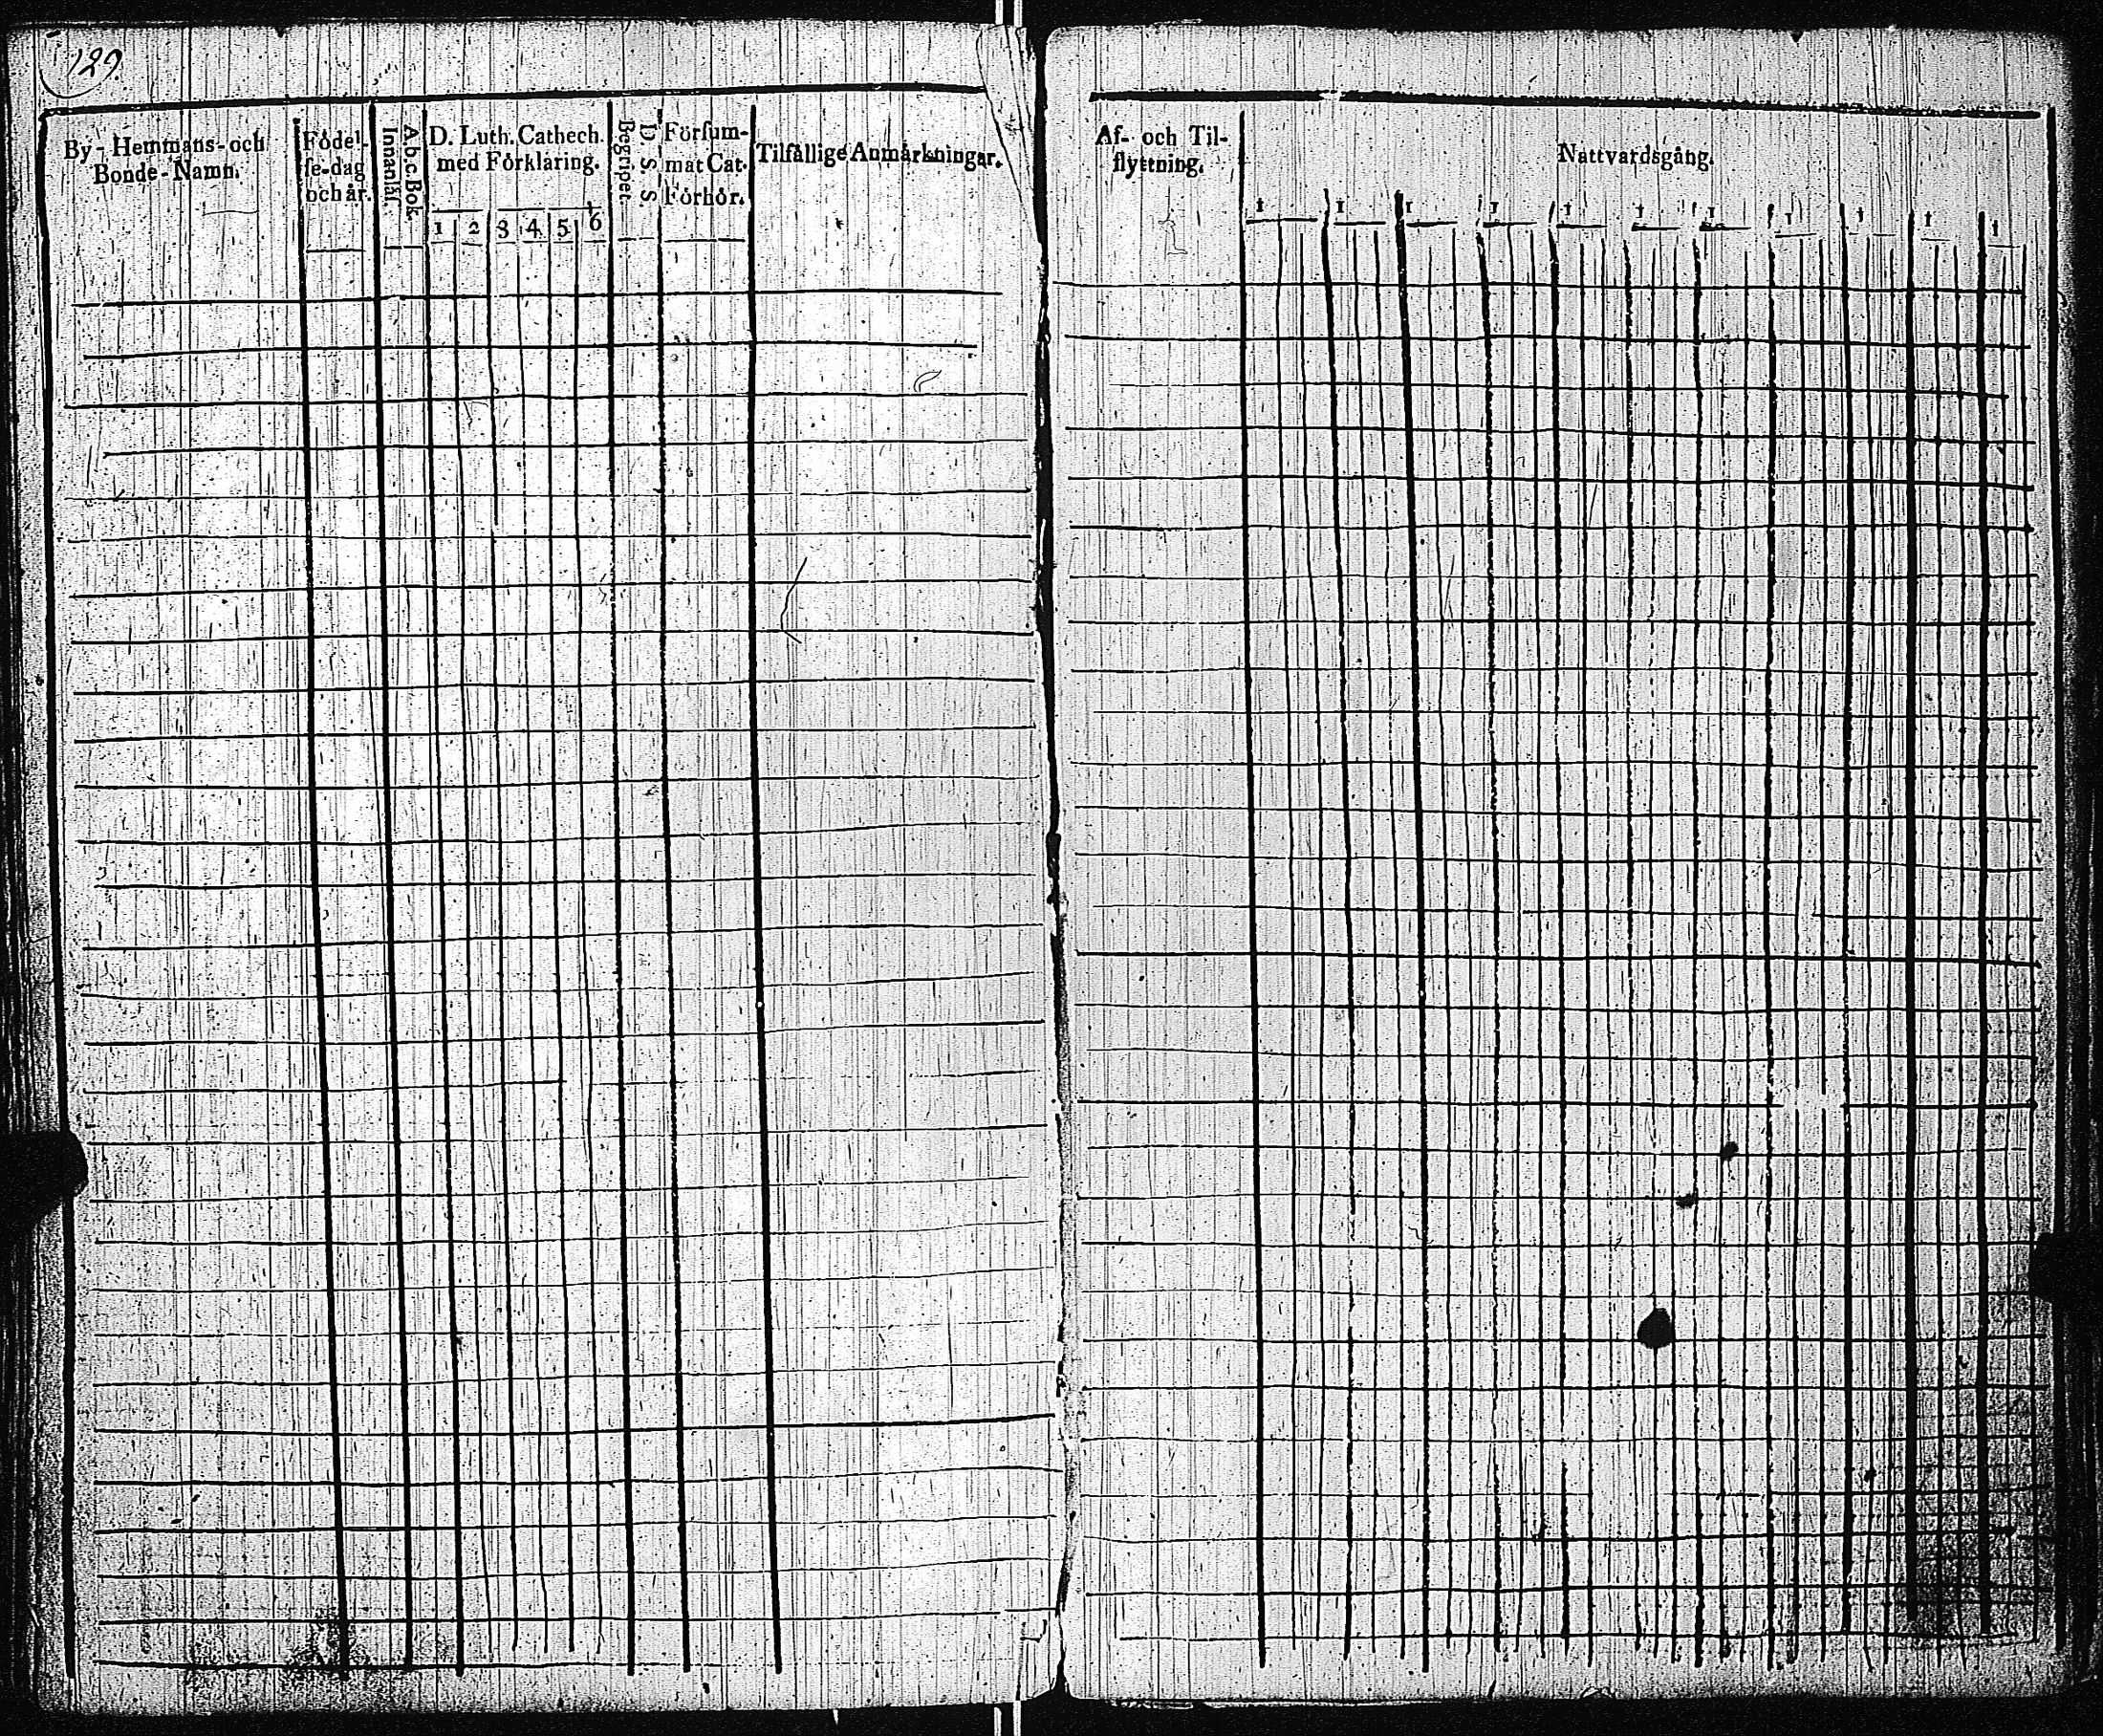 129.
By- Hemmans- och
Bonde-Namn.
Födel-
se-dag
och år.
Innanläs.
A.b.c. Bok.
D. Luth. Cathech.
med Förklaring.
1 2 3 4 5 6
Begripet.
D. S. S
Försum-
mat Cat.
Förhör.
Tilfällige Anmärkningar.
Af- och Til-
flyttning.
Nattvardsgång.
1 1 1 1 1 1 1 1 1 1 1